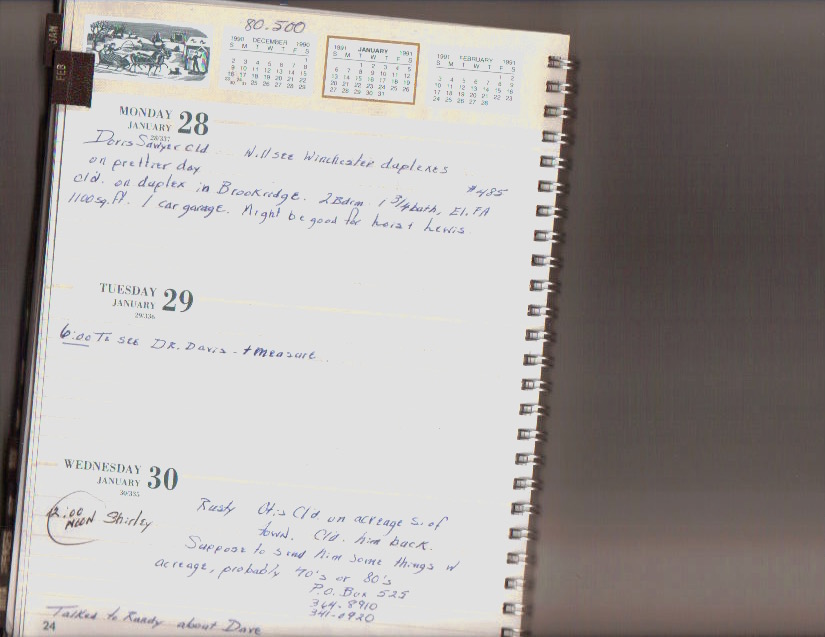 80.500
JAN
FEB
1990 DECEMBER 1990
S M T W T F S
1
2 3 4 5 6 7 8
9 10 11 12 13 14 15
16 17 18 19 20 21 22
23 30 24 31 25 26 27 28 29
1991 JANUARY 1991
S M T W T F S
1 2 3 4 5
6 7 8 9 10 11 12
13 14 15 16 17 18 19
20 21 22 23 24 25 26
27 28 29 30 31
1991 FEBRUARY 1991
S M T W T F S
1 2
3 4 5 6 7 8 9
10 11 12 13 14 15 16
17 18 19 20 21 22 23
24 25 26 27 28
MONDAY
JANUARY 28
28/337
Doris Sawyer Cld. Will see Winchester duplexes
on prettier day
Cld. on duplex in Brookridge. 2 Bdrm 1 3/4 bath, El. FA #485
1100 sq. ft. 1 car garage. Might be good for Lewis
TUESDAY
JANUARY 29
29/336
6:00 To see DR. Davis - + measure
WEDNESDAY
JANUARY 30
30/335
12:00 NOON Shirley
Rusty Otis Cld. on acreage S. of
town. Cld. him back.
Suppose to send him some things w
acreage, probably 70's or 80's
P.O. Box 525
364-8910
341-0920
Talked to Randy about Dave
24